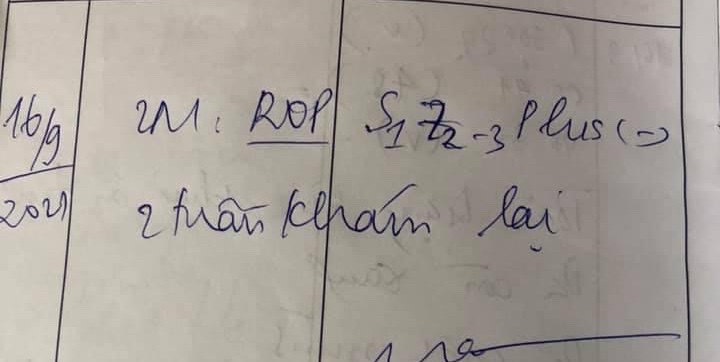 16/9
2021
2M: ROP S1 Z2-3 Plus (-)
2 tuần khám lại